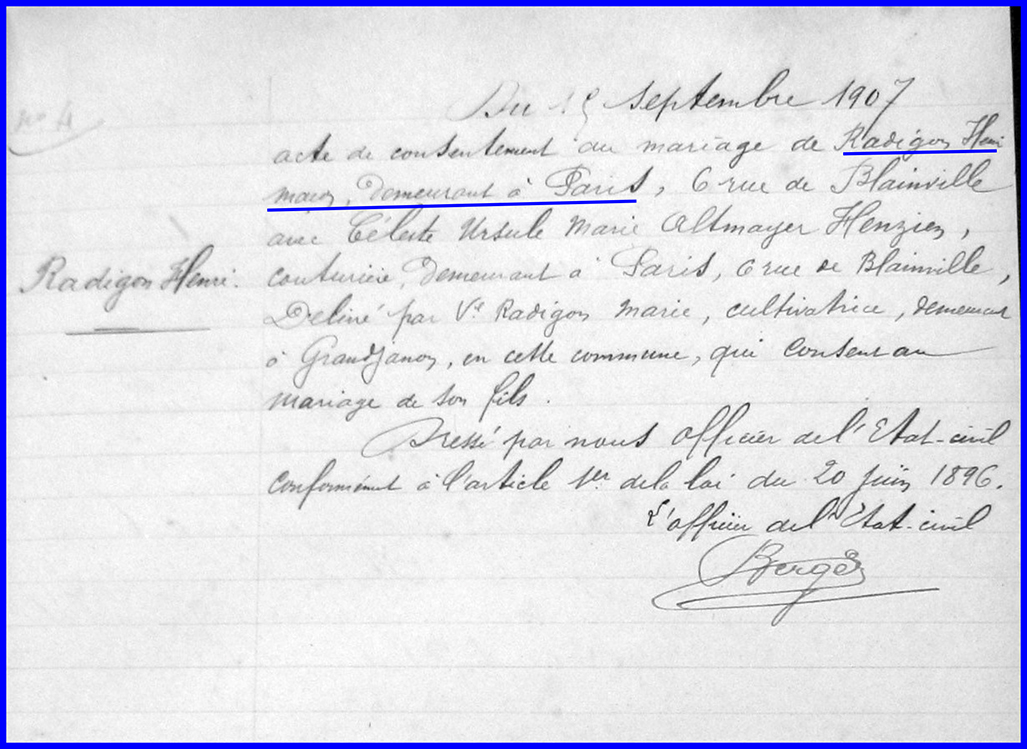 Du 15 septembre 1907
n° 4
acte de consentement au mariage de Radigon Henri
maçon, demeurant à Paris, 6 rue de Blainville
avec Céleste Ursule Marie Altmayer Henzien,
Radigon Henri.
couturière, demeurant à Paris, 6 rue de Blainville,
Delivré par Vve Radigon Marie, cultivatrice, demeurant
à GrandJanon, en cette commune, qui consent au
mariage de son fils.
Dressé par nous officier de l'Etat-civil
conformément à l'article 1er de la loi du 20 juin 1896.
L'officier de l'Etat-civil
Berger